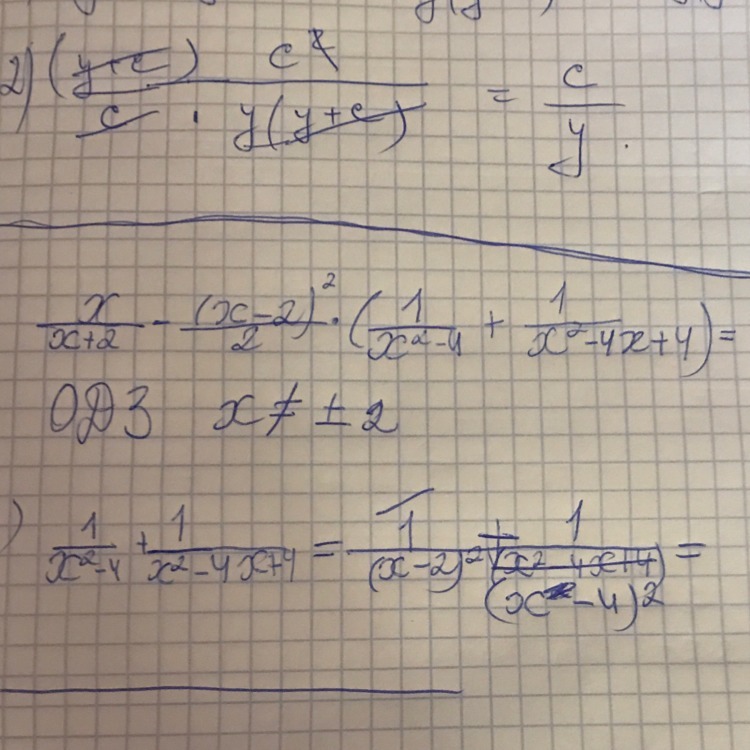 2) (y+c)/c · c²/y(y+c) = c/y.
x/(x+2) - (x-2)²/2 · (1/(x²-4) + 1/(x²-4x+4)) =
ОДЗ x ≠ ± 2
) 1/(x²-4) + 1/(x²-4x+4) = 1/(x-2)² + 1/(x-4)² =